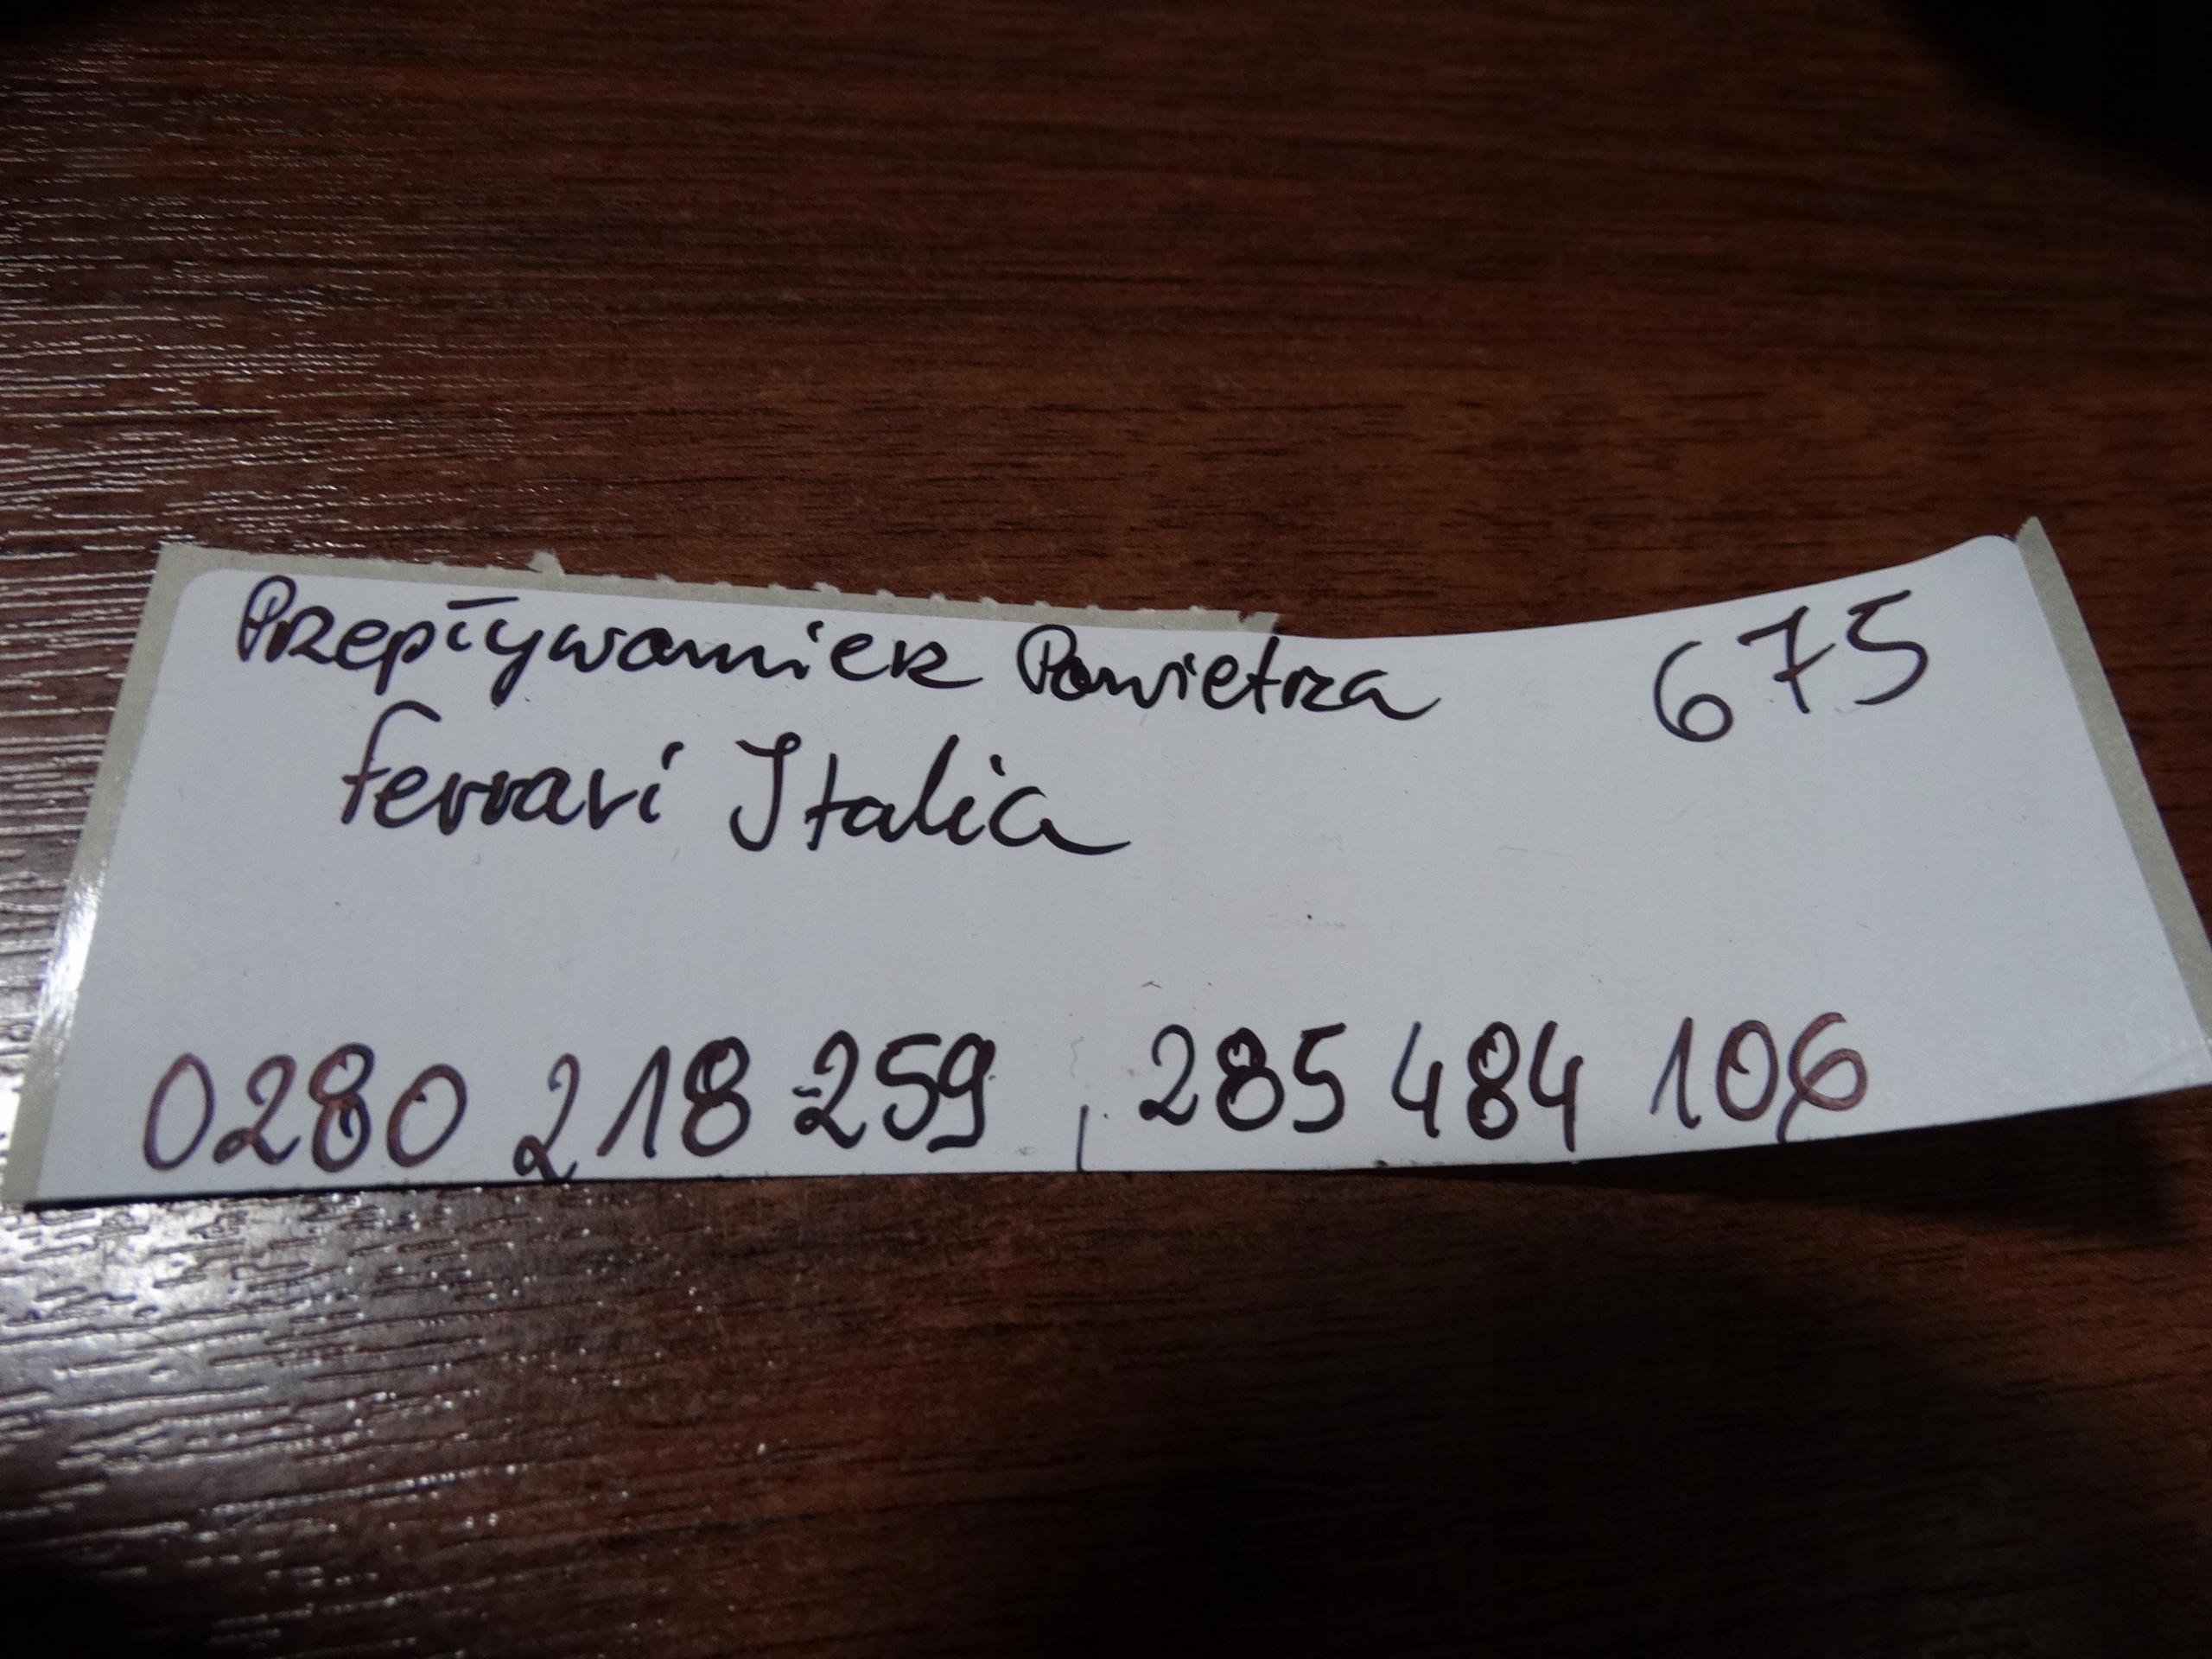 Przepływomierz Powietrza 675
Ferrari Italia
0280 218 259, 285 484 106